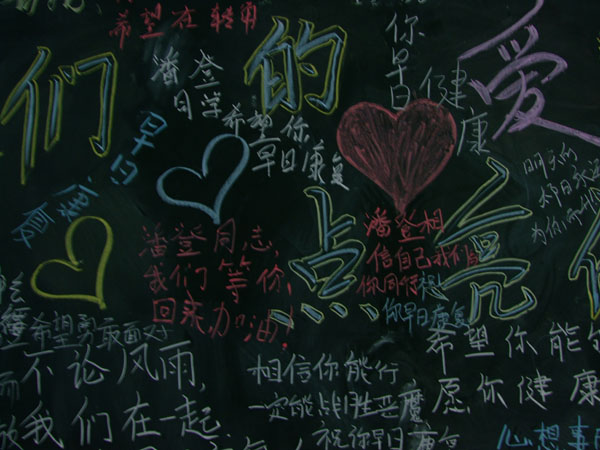 希望在转角
们的
爱
点亮
你早日健康
潘登
同学希望你
早日康复
早日
潘登同志,
我们等你,
回来加油!
潘登相
信自己我们
你早日康复
希望勇敢面对
不论风雨,
我们在一起
相信你能行
一定能战胜恶魔
祝你早日康复
希望你能
愿你健康
心想事
明天的
为你